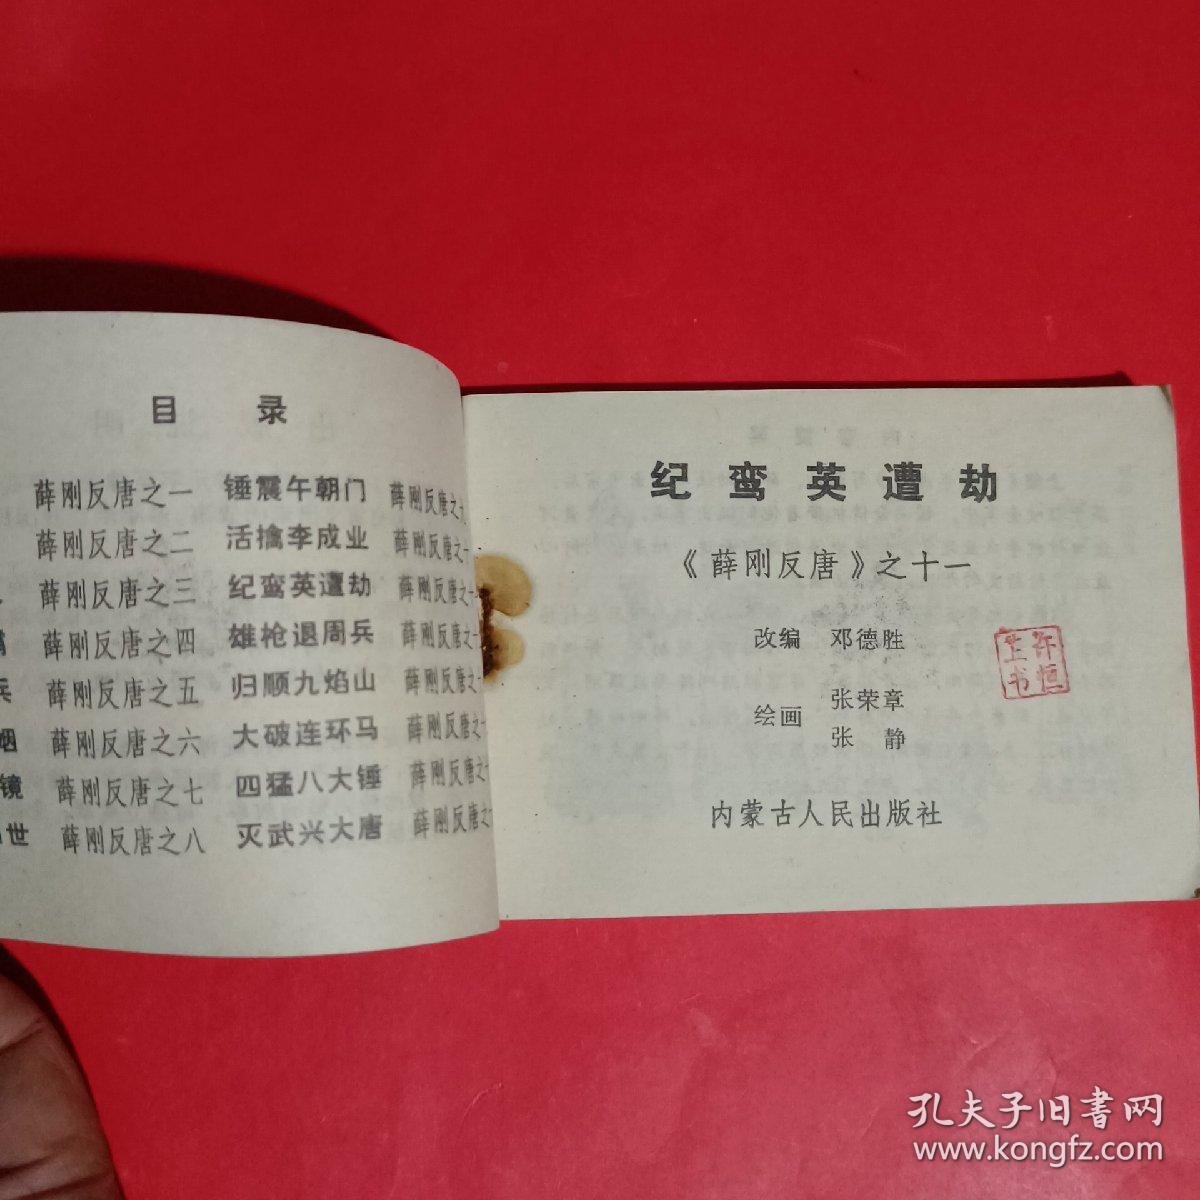 目 录
薛刚反唐之一 锤震午朝门 薛刚反唐之九
薛刚反唐之二 活擒李成业 薛刚反唐之
薛刚反唐之三 纪鸾英遭劫 薛刚反唐之
薛刚反唐之四 雄枪退周兵 薛刚反唐之
兵 薛刚反唐之五 归顺九焰山 薛刚反唐之
姻 薛刚反唐之六 大破连环马 薛刚反唐之
镜 薛刚反唐之七 四猛八大锤 薛刚反唐之
世 薛刚反唐之八 灭武兴大唐 薛刚反唐之
纪鸾英遭劫
《薛刚反唐》之十一
改编 邓德胜
绘画 张荣章
张 静
内蒙古人民出版社
许恒
书
孔夫子旧书网
www.kongfz.com